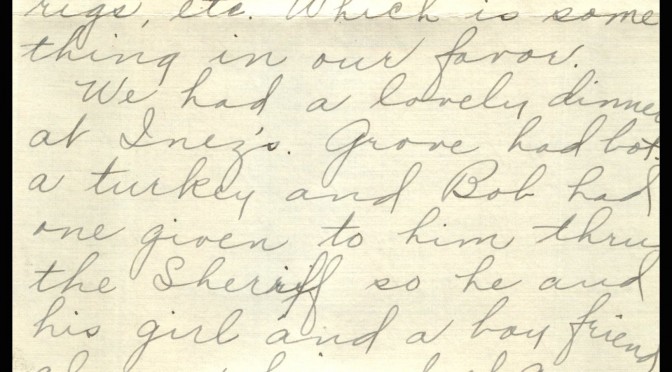 rigs, etc. Which is some
thing in our favor.
We had a lovely dinner
at Inez's. Grove had bot
a turkey and Bob had
one given to him thru
the Sheriff so he and
his girl and a boy friend